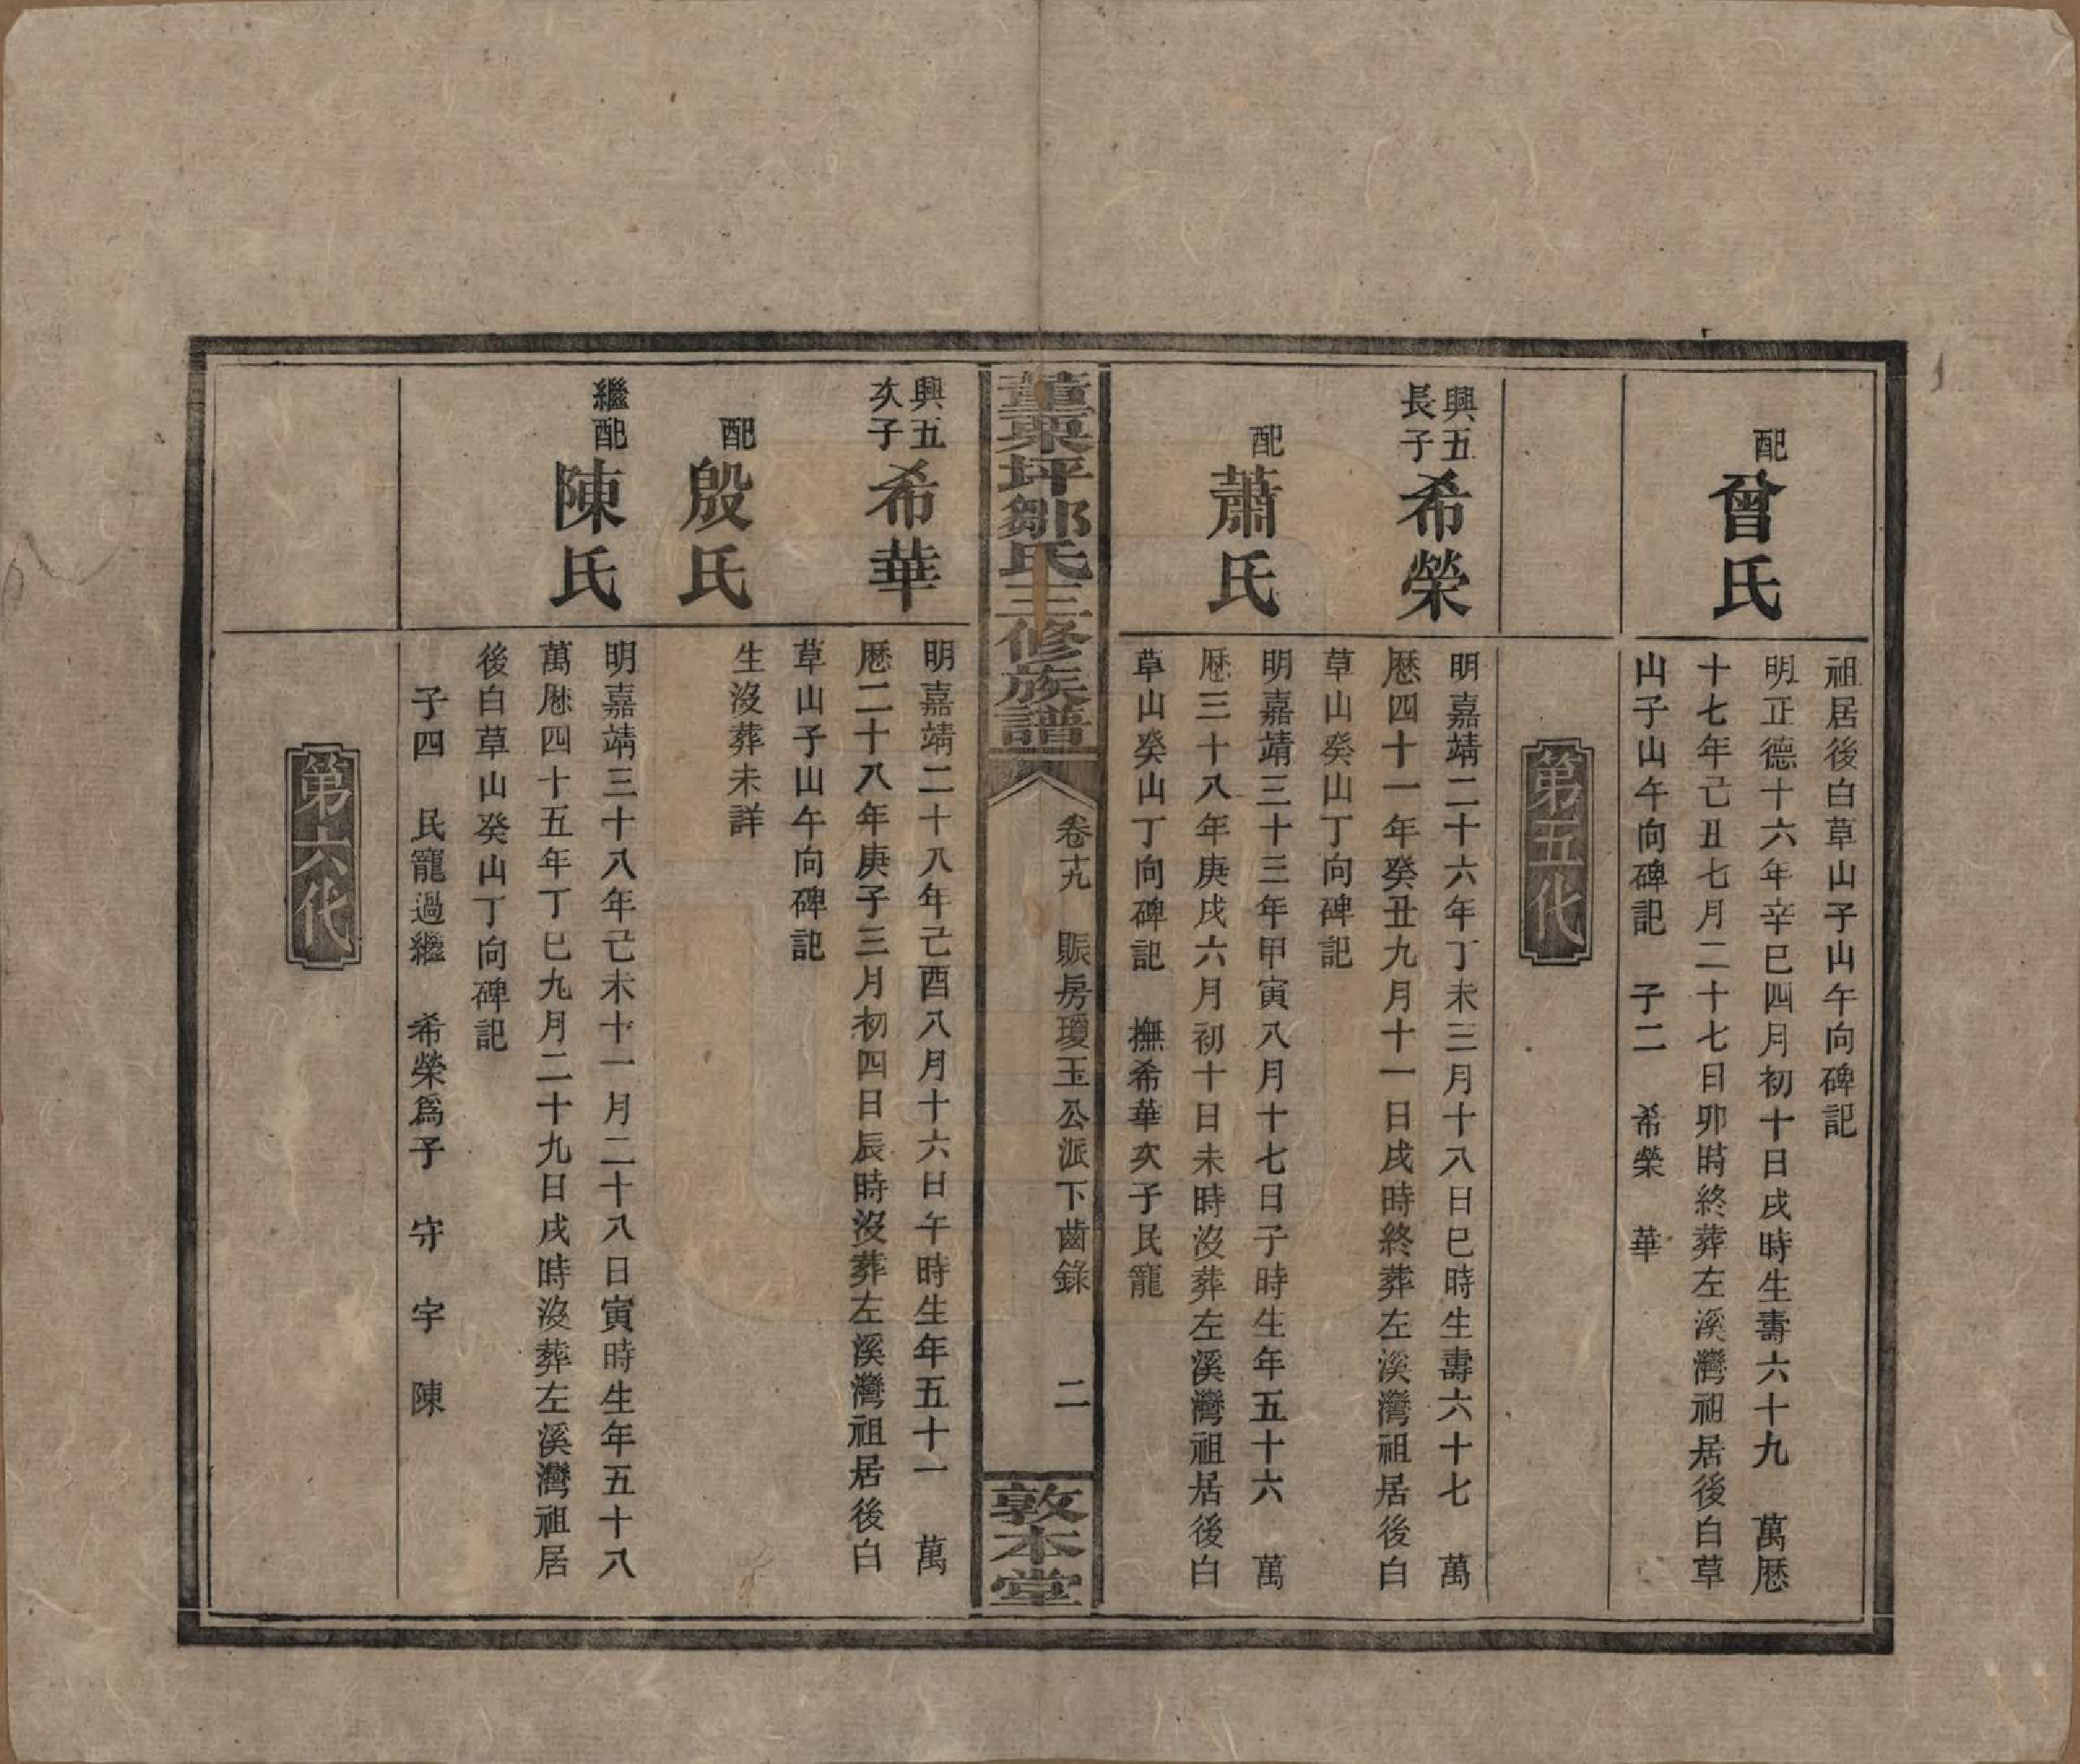 祖居後白草山子山午向碑記
配
曾氏
明正德十六年辛巳四月初十日戌時生壽六十九　萬厯
十七年己丑七月二十七日卯時終葬左溪灣祖居後白草
山子山午向碑記　子二　希榮　華
第五代
興五
長子
希榮
明嘉靖二十六年丁未三月十八日巳時生壽六十七　萬
厯四十一年癸丑九月十一日戌時終葬左溪灣祖居後白
草山癸山丁向碑記
配
蕭氏
明嘉靖三十三年甲寅八月十七日子時生年五十六　萬
厯三十八年庚戌六月初十日未時沒葬左溪灣祖居後白
草山癸山丁向碑記　撫希華次子民寵
董栗坪鄒氏三修族譜
卷十九　賑房瓊玉公派下齒錄　二
敦本堂
興五
次子
希華
明嘉靖二十八年己酉八月十六日午時生年五十一　萬
厯二十八年庚子三月初四日辰時沒葬左溪灣祖居後白
草山子山午向碑記
配
殷氏
生沒葬未詳
繼配
陳氏
明嘉靖三十八年己未十一月二十八日寅時生年五十八
萬厯四十五年丁巳九月二十九日戌時沒葬左溪灣祖居
後白草山癸山丁向碑記
子四　民寵過繼　希榮爲子　守　宇　陳
第六代